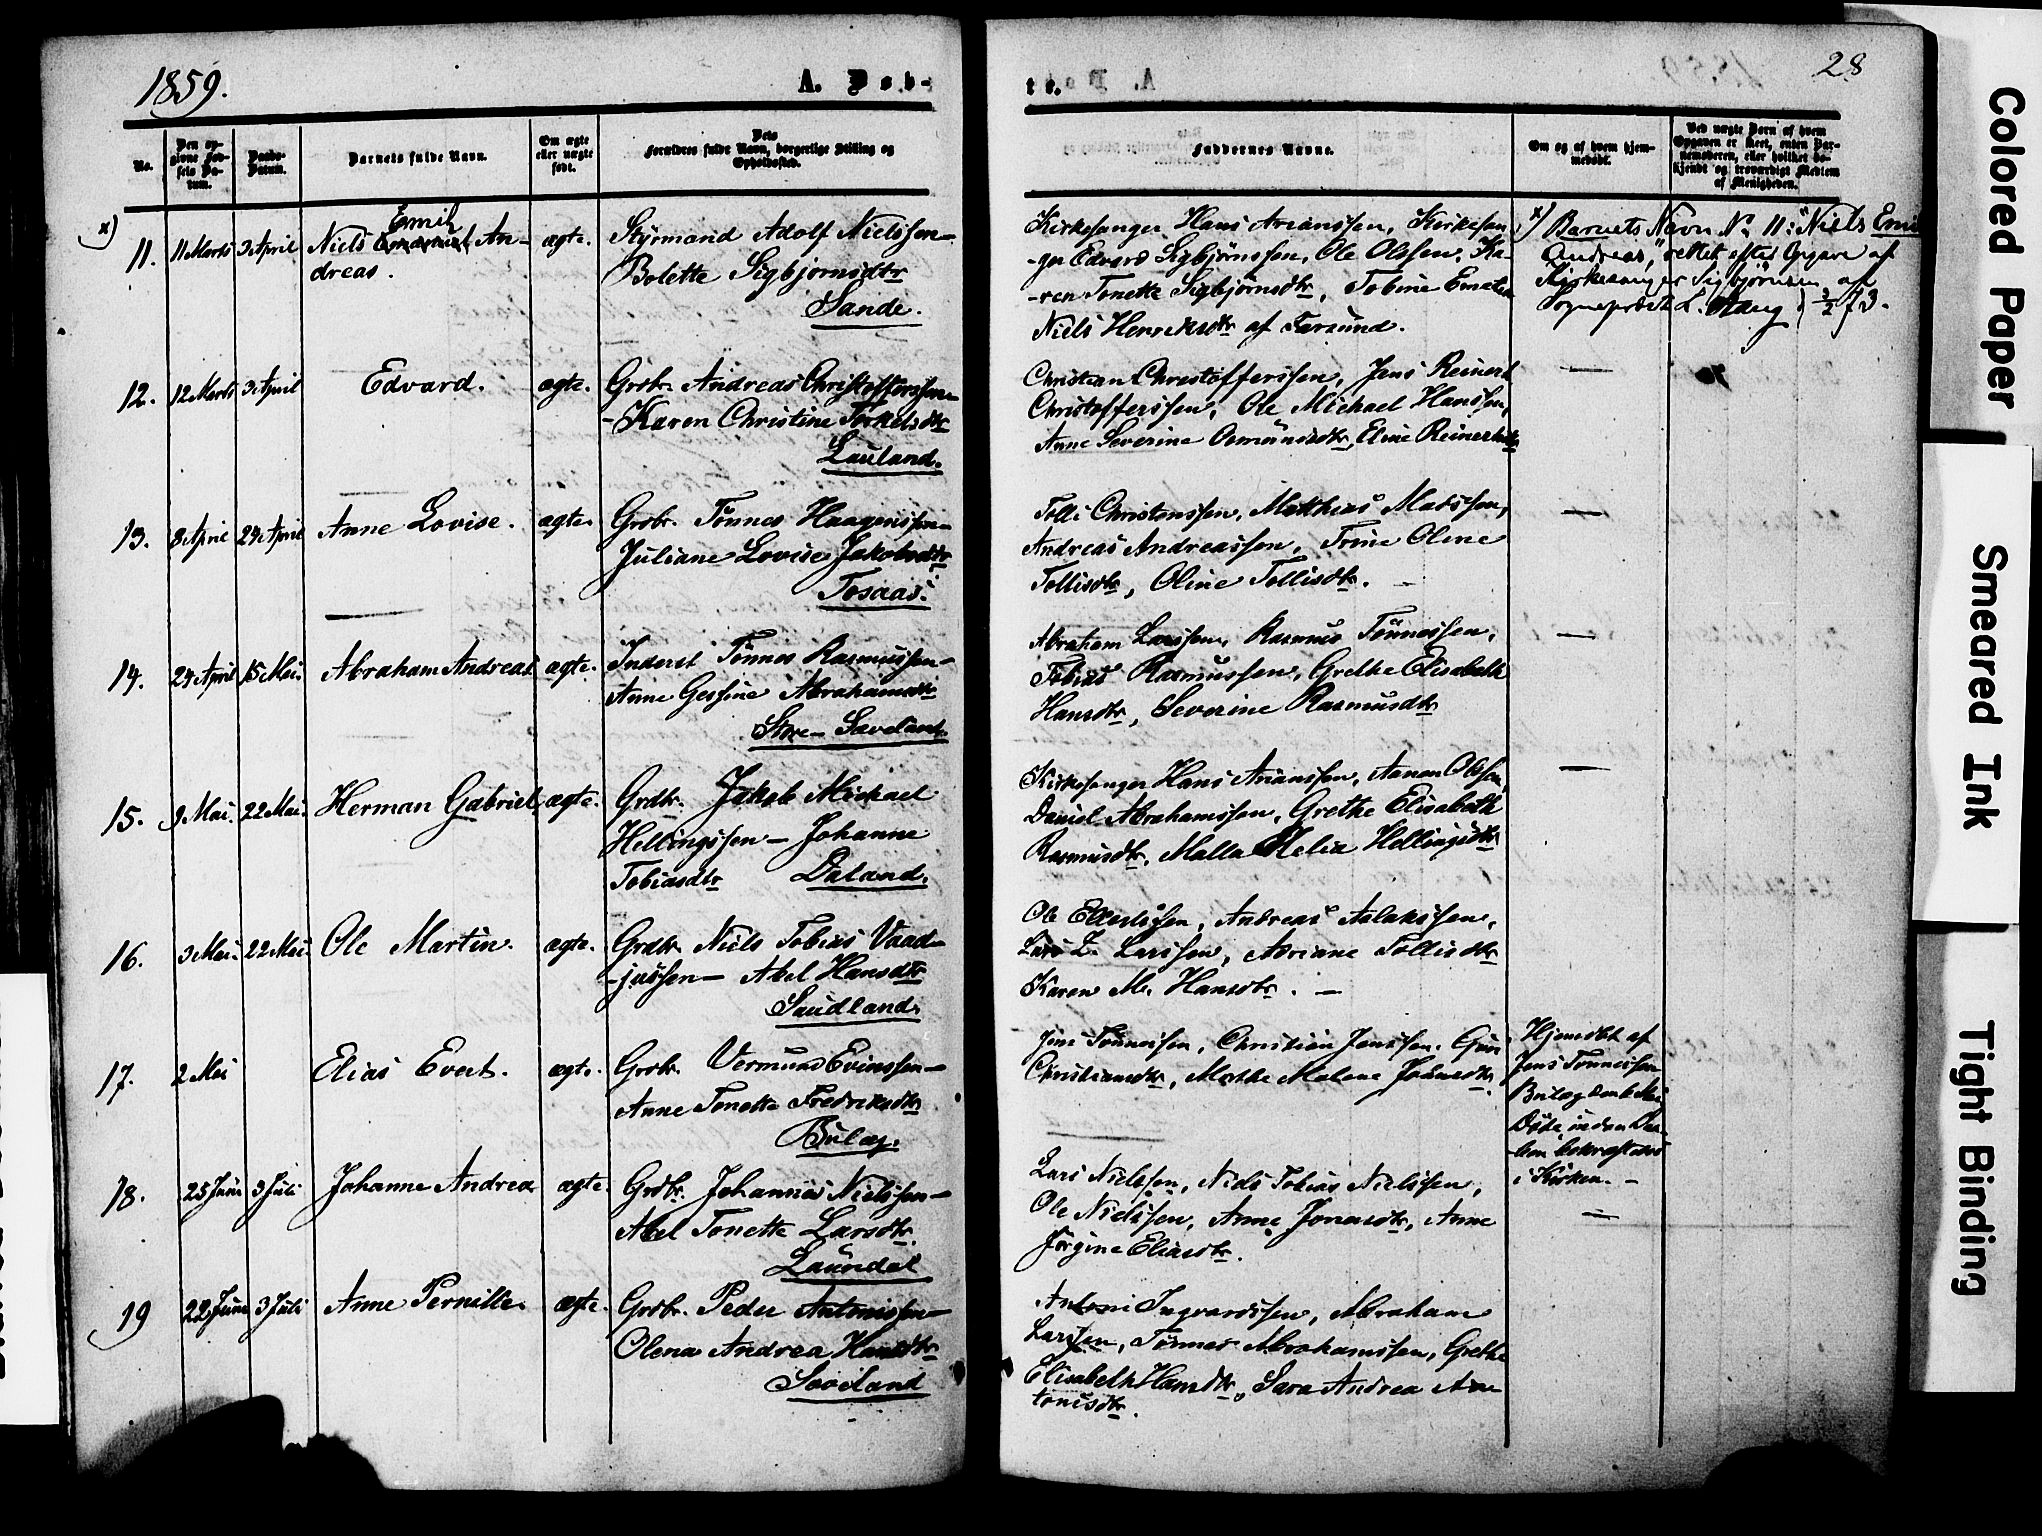 1859.
A. Døb-
te.
28
No.
Den op-
givne Fød-
sels Da-
tum.
Daabs-
Datum.
Barnets fulde Navn.
Om ægte
eller uægte
født.
Dets
Forældres fulde Navn, borgerlige Stilling og
Opholdssted.
Faddernes Navne.
Om og af hvem hjem-
medøbt.
Ved uægte Born af hvem
Opgaven er skeet, enten Bar-
nemoderen, eller hvilket be-
kjendt og troværdigt Medlem
af Menigheden.
x)
11. 11 Marts 3 April Niels Emil Emanuel An-
dreas.
ægte.
Styrmand Adolf Nielssen-
Bolette Sigbjørnsdtr
Sande.
Kirkesanger Hans Arianssen, Kirkesan-
-ger Edvard Sigbjørnssen, Ole Olssen, Ka-
-ren Tonette Sigbjørnsdtr, Tobine
Niels Henriksdtr af Farsund.
x) Barnets Navn No 11: "Niels Emil
Andreas," rettet efter Opgave af
Kirkesanger Sigbjørnsen af
Sogneprest L. 73.
12. 12 Marts 3 April Edvard. ægte. Grdbr. Andreas Christofferssen-
-Karen Christine Torkelsdtr
Lauland.
Christian Christofferssen, Jens Reinert
Christofferssen, Ole Michael Hanssen,
Anne Severine Osmundsdtr, Eline Reinertsdtr
13. 8 April 24 April Anne Lovise. ægte. Grdbr. Tønnes Haagenssen-
Juliane Lovise Jakobsdtr
Tosaas.
Tolli Christenssen, Matthias Madssen,
Andreas Andreassen, Trine Oline
Tollisdtr, Oline Tollisdtr. -
14. 24 April 15 Mai Abraham Andreas ægte. Inderst Tønnes Rasmussen-
Anne Gessine Abrahamsdtr
Store-Saveland.
Abraham Larssen, Rasmus Tønnessen,
Tobias Rasmussen, Grethe Elisabeth
Hansdtr, Severine Rasmusdtr
15. 9 Mai. 22 Mai. Herman Gabriel. ægte. Grdbr. Jakob Michael
Hellingssen - Johanne
Tobiasdtr Daland.
Kirkesanger Hans Arianssen, Aanon Olssen,
Daniel Abrahamssen, Grethe Elisabeth
Rasmusdtr, Malla Helia Hellingsdtr
16. 3 Mai. 22 Mai Ole Martin ægte. Grdbr. Niels Tobias Vaad-
-jussen - Abel Hansdtr
Saudland.
Ole Ellertssen, Andreas Aslakssen,
Lars L. Larssen, Adriane Tollisdtr
Karen M. Hansdtr. -
17. 2 Mai Elias Evert. ægte. Grdbr. Vermund Evinssen-
Anne Tonette Fredriksdtr
Bulæg.
Jens Tønnessen, Christian Jenssen, Guri
Christiansdtr, Marthe Malene Jonasdtr.
Hjemdøbt af
Jens Tønnessen
Bulæg den 6 Mai
Døde inden Daa-
-ben bekræftedes
i Kirken. -
18. 25 Juni 3 Juli Johanne Andrea ægte. Grdbr. Johannes Nielssen-
Abel Tonette Larsdtr.
Laundal
Lars Nielssen, Niels Tobias Nielssen,
Ole Nielssen, Anne Jonasdtr, Anne
Jørgine Eliasdtr.
19 22 Juni 3 Juli Anne Pernille. ægte. Grdbr. Peder Antonissen-
Olena Andrea Hansdtr
Saveland
Antoni Ingvardssen, Abraham
Larssen, Tønnes Abrahamssen, Grethe
Elisabeth Hansdtr, Sara Andrea An-
tonisdtr.
Colored Paper
Smeared Ink
Tight Binding